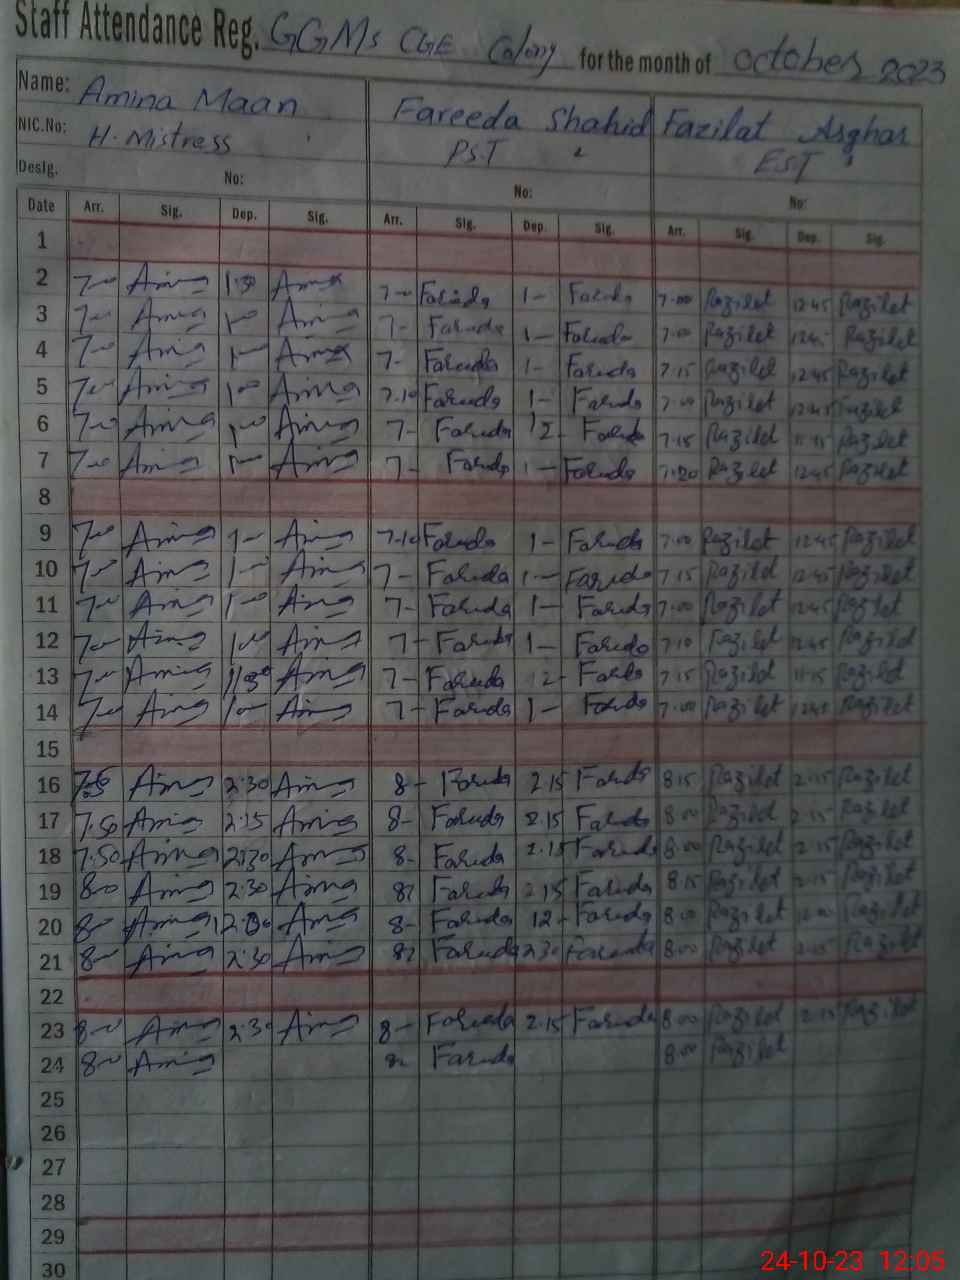 Staff Attendance Reg. GGMS CGE Colony for the month of October 2023
Name: Amina Maan Fareeda Shahid Fazilat Asghar
NIC.No: H. Mistress PST EST
Desig. No: No: No:
Date Arr. Sig. Dep. Sig. Arr. Sig. Dep. Sig. Arr. Sig. Dep. Sig.
1
2 7-00 Amina 1.30 Amina 7-00 Fareeda 1- Fareeda 7.00 Fazilat 12.45 Fazilat
3 7-00 Amina 1-00 Amina 7- Fareeda 1- Fareeda 7.00 Fazilat 12.45 Fazilat
4 7-00 Amina 1-00 Amina 7- Fareeda 1- Fareeda 7.15 Fazilat 12.45 Fazilat
5 7-00 Amina 1-00 Amina 7.10 Fareeda 1- Fareeda 7.00 Fazilat 12.45 Fazilat
6 7-00 Amina 1-00 Amina 7- Fareeda 12- Fareeda 7.15 Fazilat Fazilat
7 7-00 Amina 1-00 Amina 7- Fareeda 1- Fareeda 7.20 Fazilat 12.45 Fazilat
8
9 7-00 Amina 1-00 Amina 7-10 Fareeda 1- Fareeda 7.00 Fazilat 12.45 Fazilat
10 7-00 Amina 1-00 Amina 7- Fareeda 1- Fareeda 7.15 Fazilat 12.45 Fazilat
11 7-00 Amina 1-00 Amina 7- Fareeda 1- Fareeda 7.00 Fazilat 12.45 Fazilat
12 7-00 Amina 1-00 Amina 7- Fareeda 1- Fareeda 7.10 Fazilat 12.45 Fazilat
13 7-00 Amina Amina 7- Fareeda 12- Fareeda 7.15 Fazilat 11.15 Fazilat
14 7-00 Amina 1-00 Amina 7- Fareeda 1- Fareeda 7.00 Fazilat 12.45 Fazilat
15
16 Amina 2.30 Amina 8- Fareeda 2.15 Fareeda 8.15 Fazilat 2.15 Fazilat
17 7.50 Amina 2.15 Amina 8- Fareeda 2.15 Fareeda 8.00 Fazilat 2.15 Fazilat
18 7.50 Amina 2.30 Amina 8- Fareeda 2.15 Fareeda 8.00 Fazilat 2.15 Fazilat
19 8-00 Amina 2.30 Amina 8- Fareeda 2.15 Fareeda 8.15 Fazilat 2.15 Fazilat
20 8-00 Amina 12.00 Amina 8- Fareeda 12- Fareeda 8.00 Fazilat 12.00 Fazilat
21 8-00 Amina 2.30 Amina 8- Fareeda 2.30 Fareeda 8.00 Fazilat 2.15 Fazilat
22
23 8-00 Amina 2.30 Amina 8- Fareeda 2.15 Fareeda 8.00 Fazilat 2.15 Fazilat
24 8-00 Amina 8- Fareeda 8.00 Fazilat
25
26
27
28
29
30
24-10-23 12:05